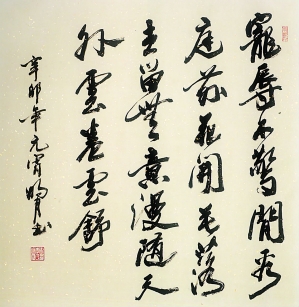 寵辱不驚閒看
庭前花開花落
去留無意漫隨天
外雲卷雲舒
辛卯年元宵